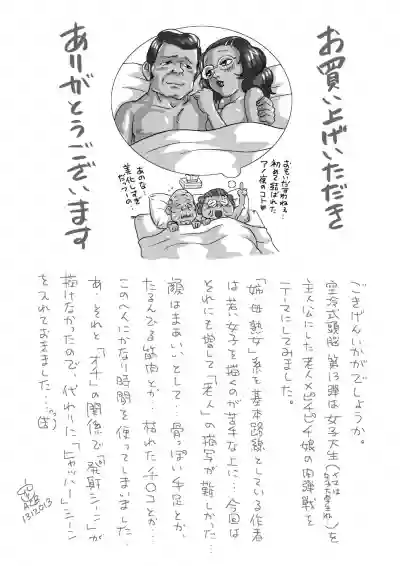 お買い上げいただき
ありがとうございます
おもいだすわね…
初めて結ばれた
アノ夜のコト♥
あのな…
美化しすぎ
だっつーの…
ごきげんいかがでしょうか。
空冷式頭脳 第13弾は女子大生
を
主人公にした老人×ピチピチ娘の肉弾戦を
テーマにしてみました。
「姉母熟女」系を基本路線としている作者
は若い女子を描くのが苦手な上に…今回は
それにも増して「老人」の描写が難しかった…
顔はまあいいとして…骨っぽい手足とか、
たるんでる筋肉とか、枯れたチ○コとか…
このへんにかなり時間を使ってしまいました。
あ、それと「オチ」の関係で「発射シーン」が
描けなかったので、代わりに「ヒャッハー」シーン
を入れておきました…(笑)
13.12.2013